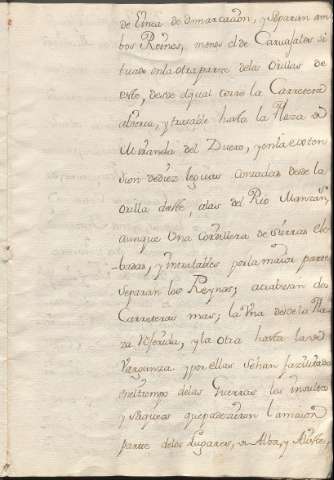 de linea de dimarcacion, y separan am
bos Reinos, menos el de Carvajales si
tuado en la otra parte de las orillas de
este, desde el qual corre la Carretera
abierta, y tratable hasta la Plaza de
Miranda del Duero, y en la exten
sion de diez leguas contadas desde la
orilla de este, a las del Rio Manzan,
aunque una cordillera de sierras ele
badas, y inevitables por la maior parte
separan los Reynos; atrabiesan dos
Carreteras mas; la una desde la Pla
za referida, y la otra hasta la de
Varganza y por ellas se han facilitado
en el tiempo de las Guerras los insultos
y saqueos que padecieron la maior
parte de los lugares, de Alba, y Aliste,